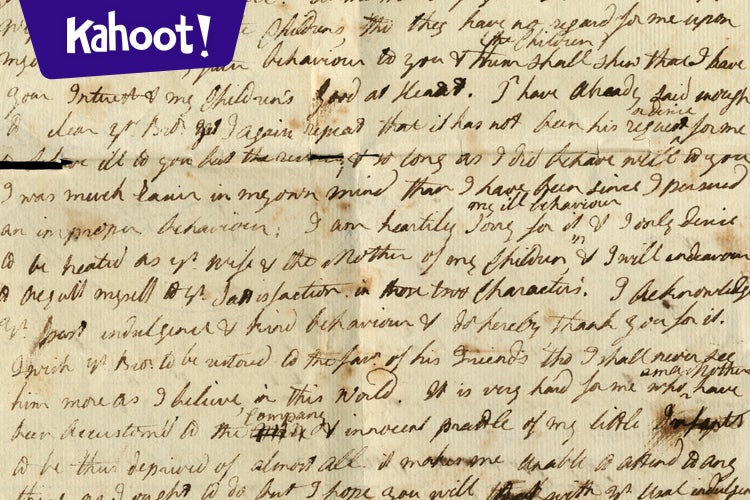 Kahoot!
Children, tho they have no regard for me upon
the Children
my behaviour to you & them shall shew that I have
your Interest & my Children's good at Heart. I have already said enough
advice
to clear yr Bror yet I again repeat that it has not been his request for me
ill to you but the & so long as I did behave well to you
I was much Easier in my own mind than I have been since I pursued
my ill behaviour
an improper behaviour; I am heartily Sorry for it & I only desire
to be treated as yr Wife & the Mother of my Children & I will endeavour
to regulate myself to yr Satisfaction in those two Characters. I Acknowledge
yr past indulgence & kind behaviour & do hereby thank you for it.
I wish yr Bror to be restored to the favr of his Friends tho I shall never see
am a Mother
him more as I believe in this World. It is very hard for me who have
Company
been accustom'd to the & innocent prattle of my little Infants
to be thus deprived of almost all it makes me unable to attend to any
thing as I ought to do but I hope you will with yr usual indulgence